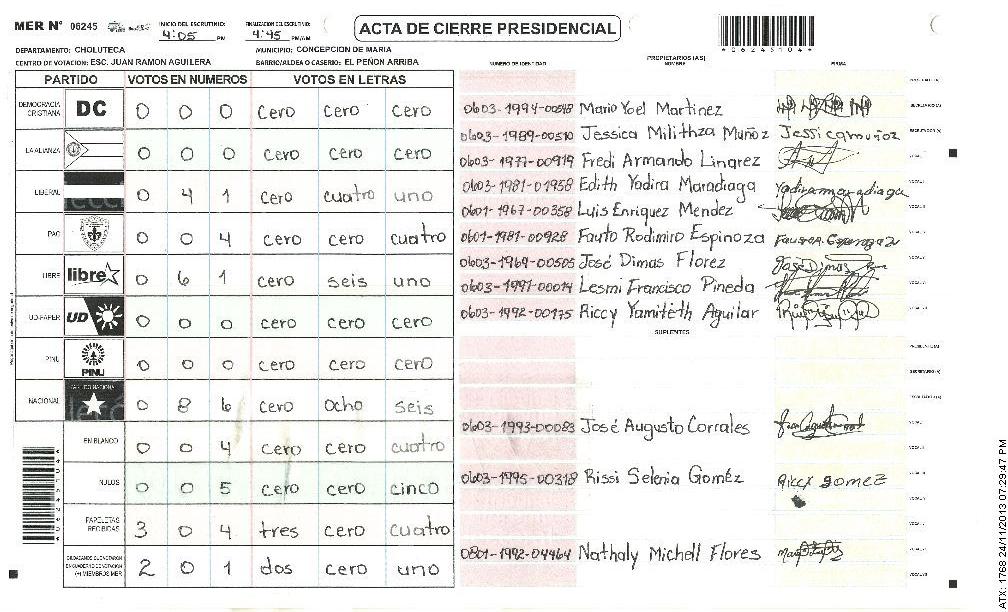 MER N° 06245 INICIO DEL ESCRUTINIO: 4:05 PM FINALIZACION DEL ESCRUTINIO: 4:45 PM/AM
ACTA DE CIERRE PRESIDENCIAL
DEPARTAMENTO: CHOLUTECA MUNICIPIO: CONCEPCION DE MARIA
CENTRO DE VOTACION: ESC. JUAN RAMON AGUILERA BARRIO/ALDEA O CASERIO: EL PEÑON ARRIBA
PARTIDO VOTOS EN NUMEROS VOTOS EN LETRAS
DEMOCRACIA CRISTIANA DC 0 0 0 cero cero cero
LA ALIANZA 0 0 0 cero cero cero
LIBERAL 0 4 1 cero cuatro uno
PAC 0 0 4 cero cero cuatro
LIBRE libre 0 6 1 cero seis uno
UD-FAPER UD 0 0 0 cero cero cero
PINU PINU 0 0 0 cero cero cero
NACIONAL PARTIDO NACIONAL 0 8 6 cero ocho seis
EN BLANCO 0 0 4 cero cero cuatro
NULOS 0 0 5 cero cero cinco
PAPELETAS RECIBIDAS 3 0 4 tres cero cuatro
(+) MIEMBROS MER 2 0 1 dos cero uno
PROPIETARIOS (AS)
NUMERO DE IDENTIDAD NOMBRE FIRMA
0603-1994-00548 Mario Yoel Martinez
0603-1989-00510 Jessica Milithza Muñoz Jessicamuñoz
0603-1977-00919 Fredi Armando Linarez
0603-1981-01958 Edith Yadira Maradiaga Yadiramaradiaga
0601-1967-00358 Luis Enriquez Mendez
0601-1981-00928 Fauto Rodimiro Espinoza
0603-1969-00505 José Dimas Florez José Dimas
0603-1991-00014 Lesmi Francisco Pineda
0603-1992-00175 Riccy Yamitéth Aguilar
SUPLENTES
0603-1993-00083 José Augusto Corrales
0603-1995-00318 Rissi Selenia Goméz Riccy Gomez
0801-1992-04464 Nathaly Michell Flores
ATX: 1768 24/11/2013 07:29:47 PM